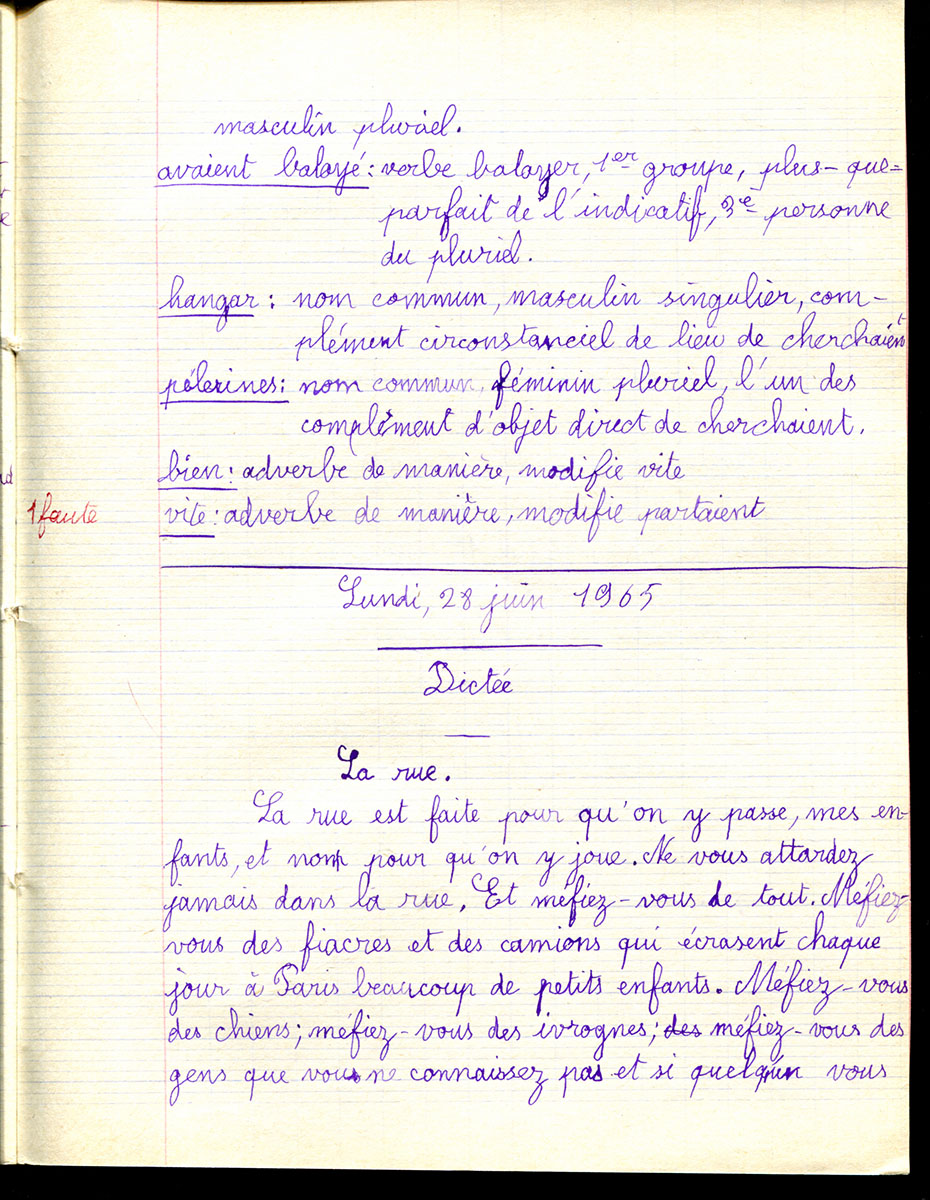 masculin pluriel.
avaient balayé : verbe balayer, 1er groupe, plus-que-
parfait de l'indicatif, 3e personne
du pluriel.
hangar : nom commun, masculin singulier, com-
plément circonstanciel de lieu de cherchaient
pélerines : nom commun, féminin pluriel, l'un des
complément d'objet direct de cherchaient.
bien : adverbe de manière, modifie vite
1 faute vite : adverbe de manière, modifie partaient
Lundi, 28 juin 1965
Dictée
La rue.
La rue est faite pour qu'on y passe, mes en-
fants, et non pour qu'on y joue. Ne vous attardez
jamais dans la rue. Et méfiez-vous de tout. Méfiez-
vous des fiacres et des camions qui écrasent chaque
jour à Paris beaucoup de petits enfants. Méfiez-vous
des chiens ; méfiez-vous des ivrognes ; des méfiez-vous des
gens que vous ne connaissez pas et si quelqu'un vous